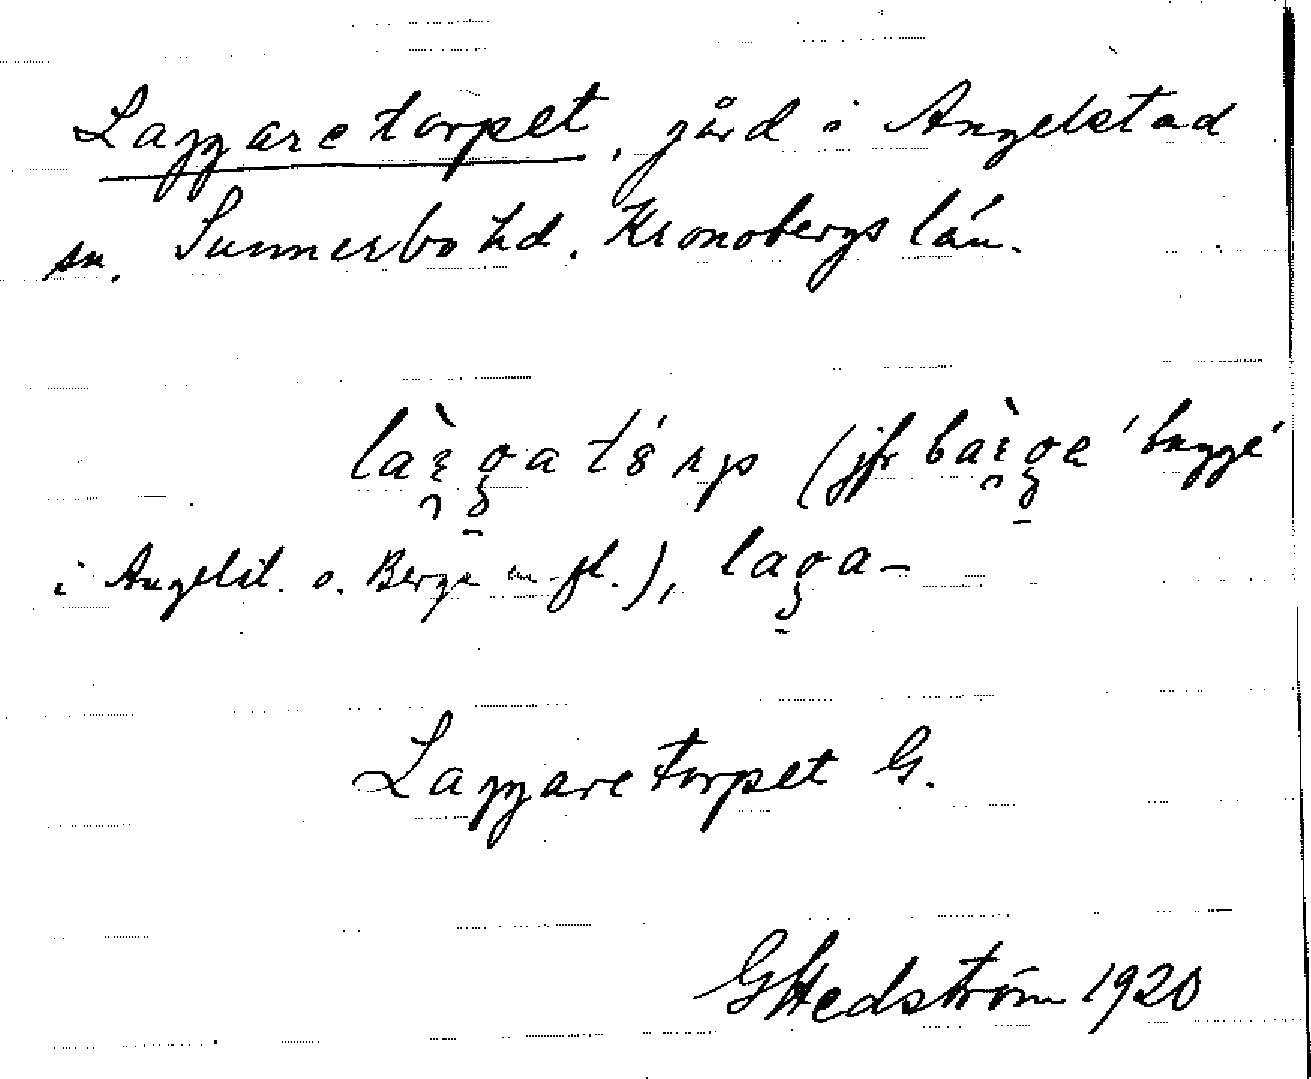 Laggaretorpet, gård i Angelstad
sn. Sunnerbo hd. Kronobergs län.
(jfr 'bagge'
i Angelst. o. Berga m fl.), laga-
Laggaretorpet G.
GHedström 1920